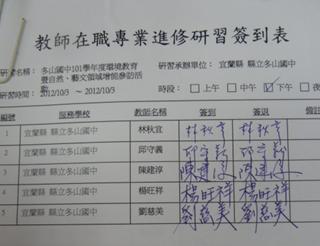 教師在職專業進修研習簽到表
研習名稱: 冬山國中101學年度環境教育暨自然、藝文領域增能參訪活動
研習承辦單位: 宜蘭縣 縣立冬山國中
研習時間: 2012/10/3 ~ 2012/10/3
時段: 上午 中午 下午 夜
編號 服務學校 教師名稱 簽到 簽退 備註
1 宜蘭縣 縣立冬山國中 林秋宜 林秋宜 林秋宜
2 宜蘭縣 縣立冬山國中 邱守義 邱守義 邱守義
3 宜蘭縣 縣立冬山國中 陳建淳 陳建淳 陳建淳
4 宜蘭縣 縣立冬山國中 楊旺祥 楊旺祥 楊旺祥
5 宜蘭縣 縣立冬山國中 劉慈美 劉慈美 劉慈美